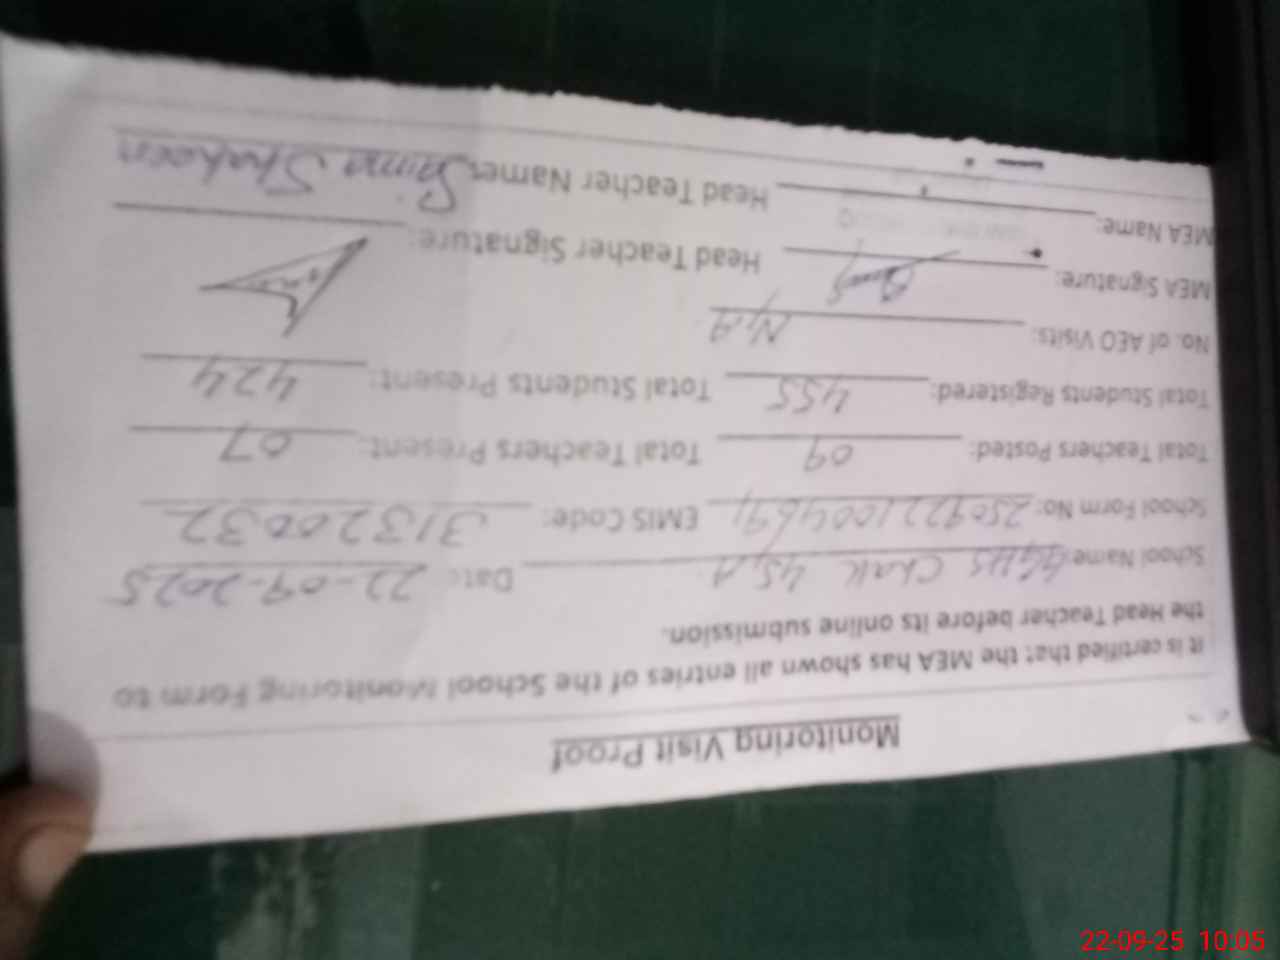 Monitoring Visit Proof
It is certified that the MEA has shown all entries of the School Monitoring Form to
the Head Teacher before its online submission.
School Name GGHS Chak 45,A Date: 22-09-2025
School Form No: EMIS Code: 31320032
Total Teachers Posted: 09 Total Teachers Present: 07
Total Students Registered: 455 Total Students Present: 424
No. of AEO Visits: N,A
MEA Signature: Head Teacher Signature:
MEA Name: Head Teacher Name: Saima Shaheen
22-09-25 10:05